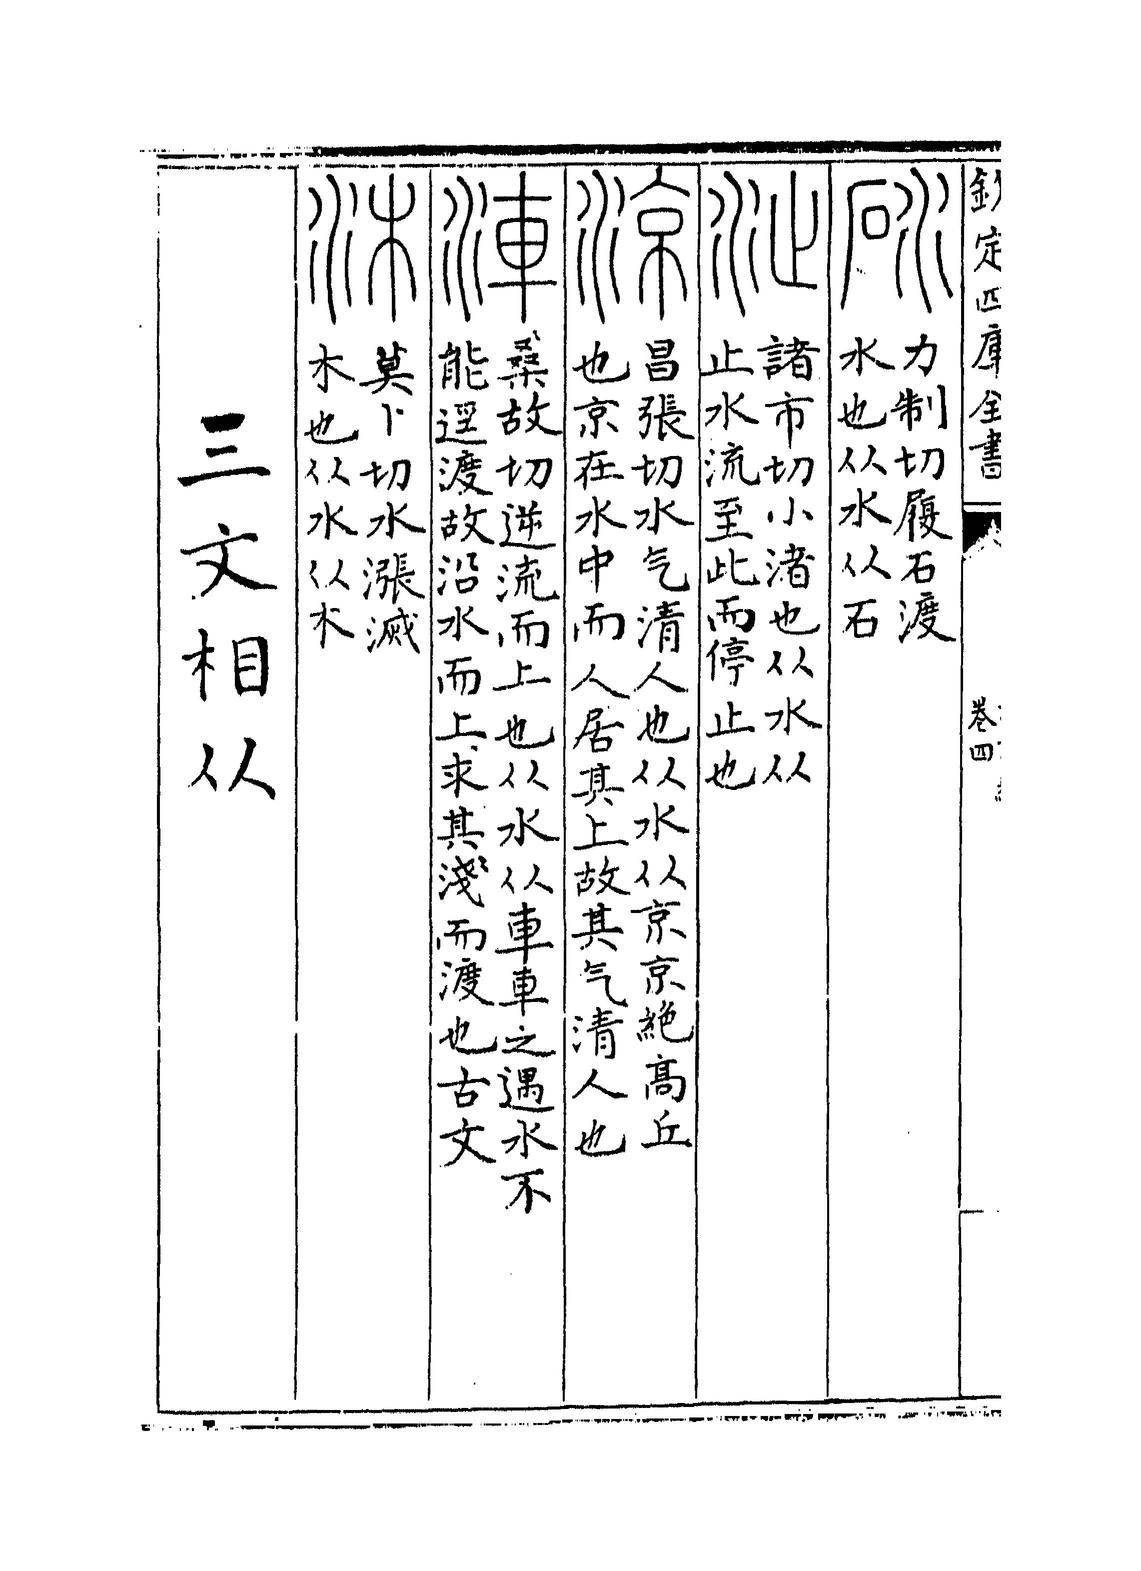 欽定四庫全書
卷四
砅
力制切履石渡
水也从水从石
沚
諸市切小渚也从水从
止水流至此而停止也
涼
昌張切水气清人也从水从京京絶高丘
也京在水中而人居其上故其气清人也
𣶂
桑故切逆流而上也从水从車車之遇水不
能逕渡故沿水而上求其淺而渡也古文
沐
莫卜切水漲滅
木也从水从木
三文相从